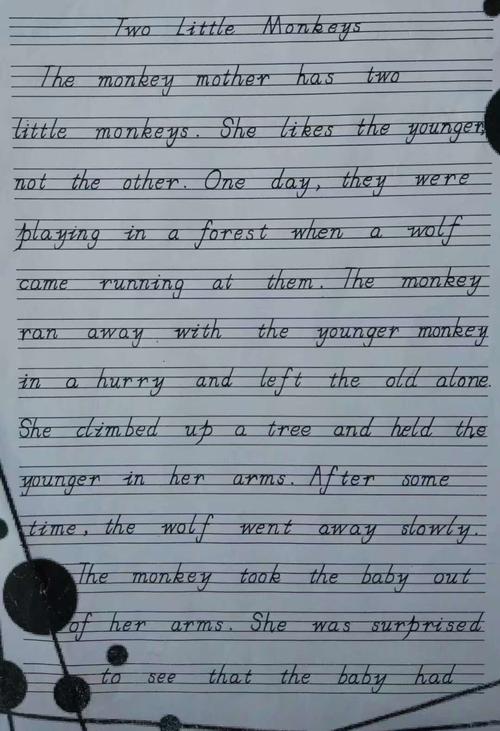 Two Little Monkeys
The monkey mother has two
little monkeys. She likes the younger,
not the other. One day, they were
playing in a forest when a wolf
came running at them. The monkey
ran away with the younger monkey
in a hurry and left the old alone.
She climbed up a tree and held the
younger in her arms. After some
time, the wolf went away slowly.
The monkey took the baby out
of her arms. She was surprised
to see that the baby had